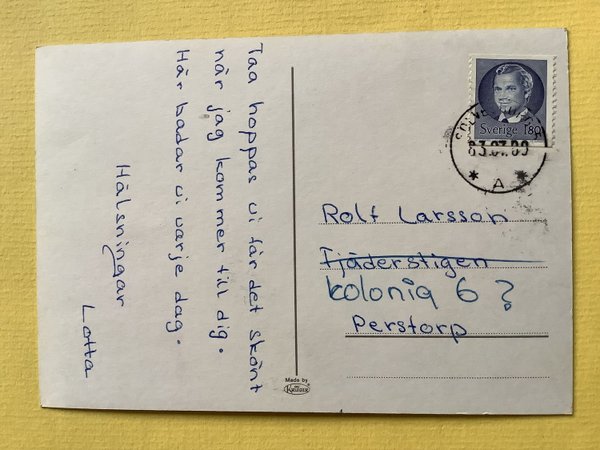 Taa hoppas vi får det skönt
når jag kommer till dig.
Här badar vi varje dag.
Hälsningar
Lotta
Sverige 180
83.07.89
A
Rolf Larsson
Tjäderstigen
kolonia 6?
Perstorp
Made by